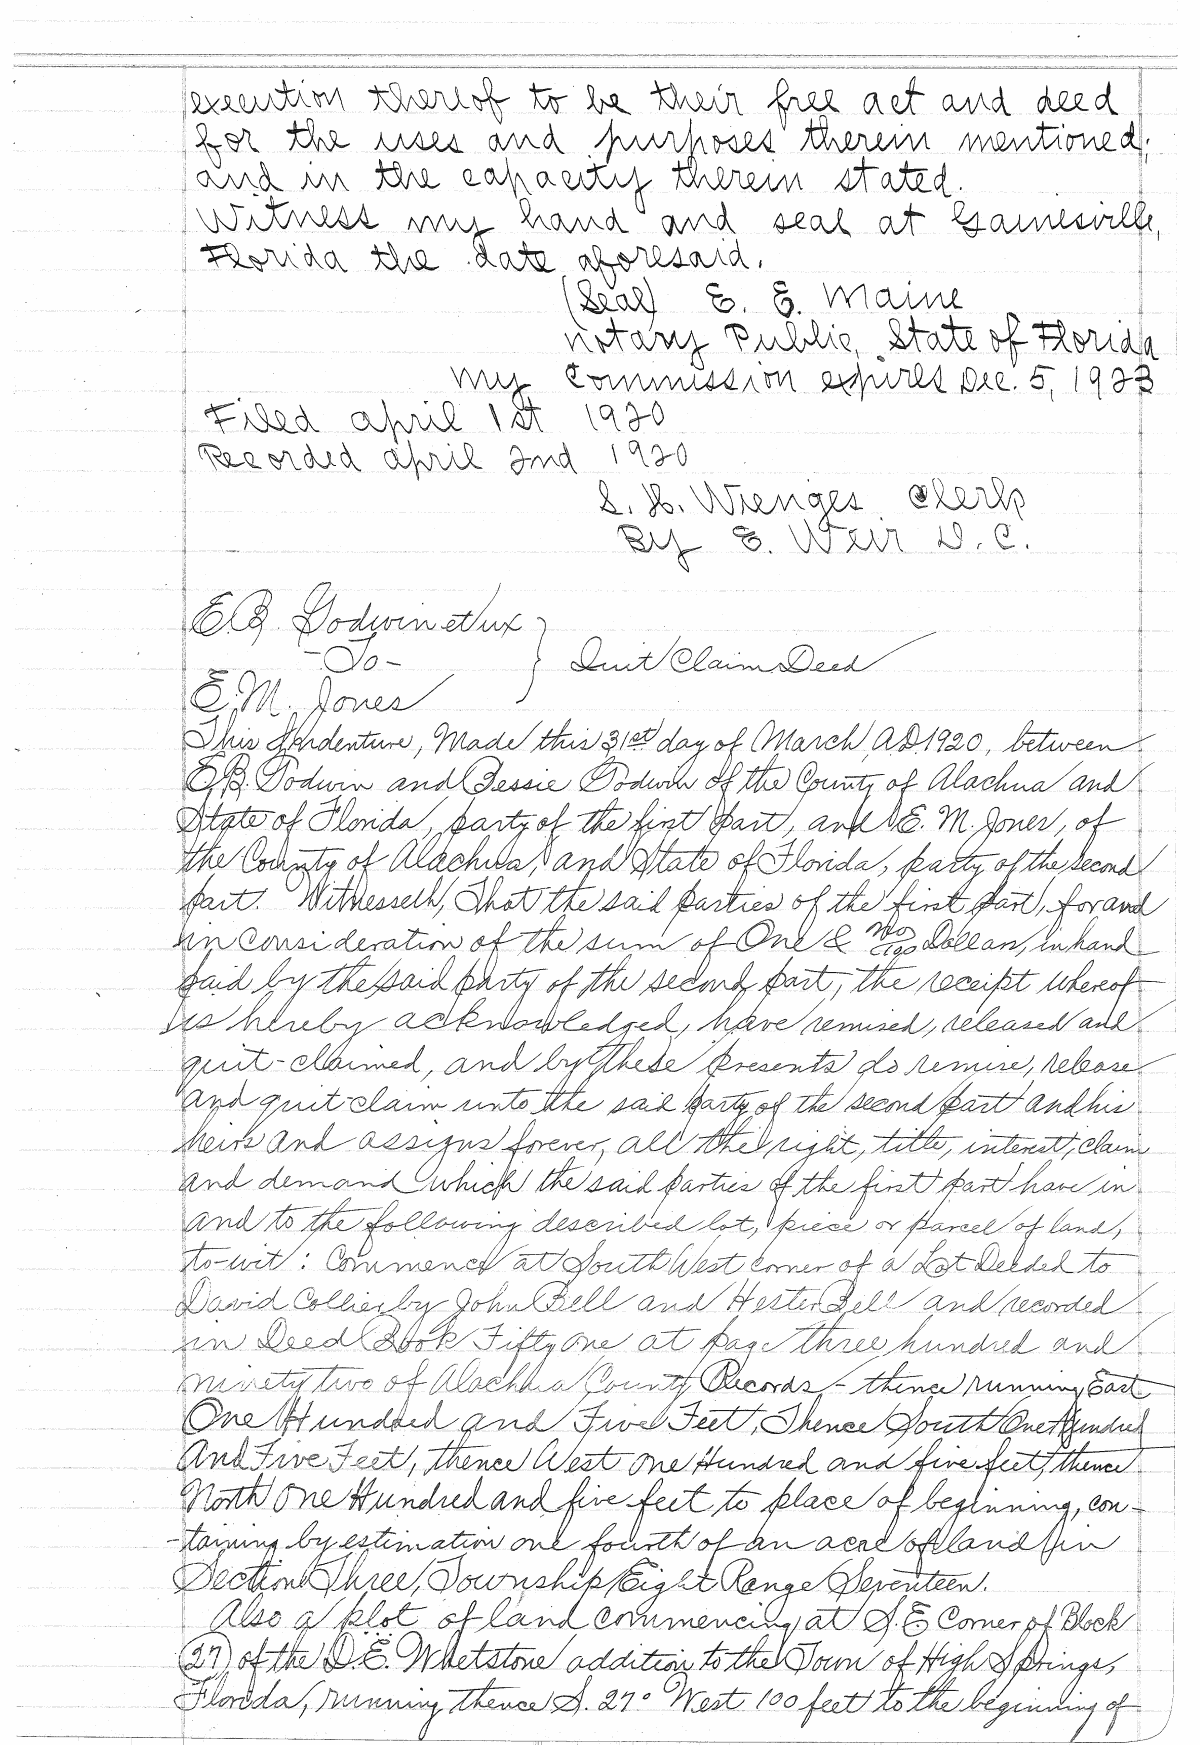 execution thereof to be their free act and deed
for the uses and purposes therein mentioned;
and in the capacity therein stated.
Witness my hand and seal at Gainesville,
Florida the date aforesaid.
(Seal) E. E. Maine
Notary Public, State of Florida
My Commission expires Dec. 5, 1923
Filed april 1st 1920
Recorded april 2nd 1920
S. H. Wienges Clerk
By E. Weir D. C.
E.B. Godwin et ux
-To-
} Quit Claim Deed
E.M. Jones
This Indenture, Made this 31st day of March A.D. 1920, between
E.B. Godwin and Bessie Godwin of the County of Alachua and
State of Florida, party of the first part, and E. M. Jones, of
the County of Alachua, and State of Florida, party of the second
part. Witnesseth, That the said parties of the first part, for and
in consideration of the sum of One & no/100 Dollars, in hand
paid by the said party of the second part, the receipt whereof
is hereby acknowledged, have remised, released and
quit-claimed, and by these presents do remise, release
and quit-claim unto the said party of the second part and his
heirs and assigns forever, all the right, title, interest, claim
and demand which the said parties of the first part have in
and to the following described lot, piece or parcel of land,
to-wit: Commence at South West corner of a Lot Deeded to
David Collier by John Bell and Hester Bell and recorded
in Deed Book Fifty One at page three hundred and
ninety two of Alachua County Records - thence running East
One Hundred and Five Feet, Thence South One Hundred
And Five Feet, thence West one Hundred and five feet, thence
North One Hundred and five feet to place of beginning, con-
-taining by estimation one fourth of an acre of land in
Section Three, Township Eight Range Seventeen.
Also a plot of land commencing at S.E Corner of Block
(27) of the D.E. Whetstone addition to the Town of High Springs,
Florida, running thence S. 27° West 100 feet to the beginning of